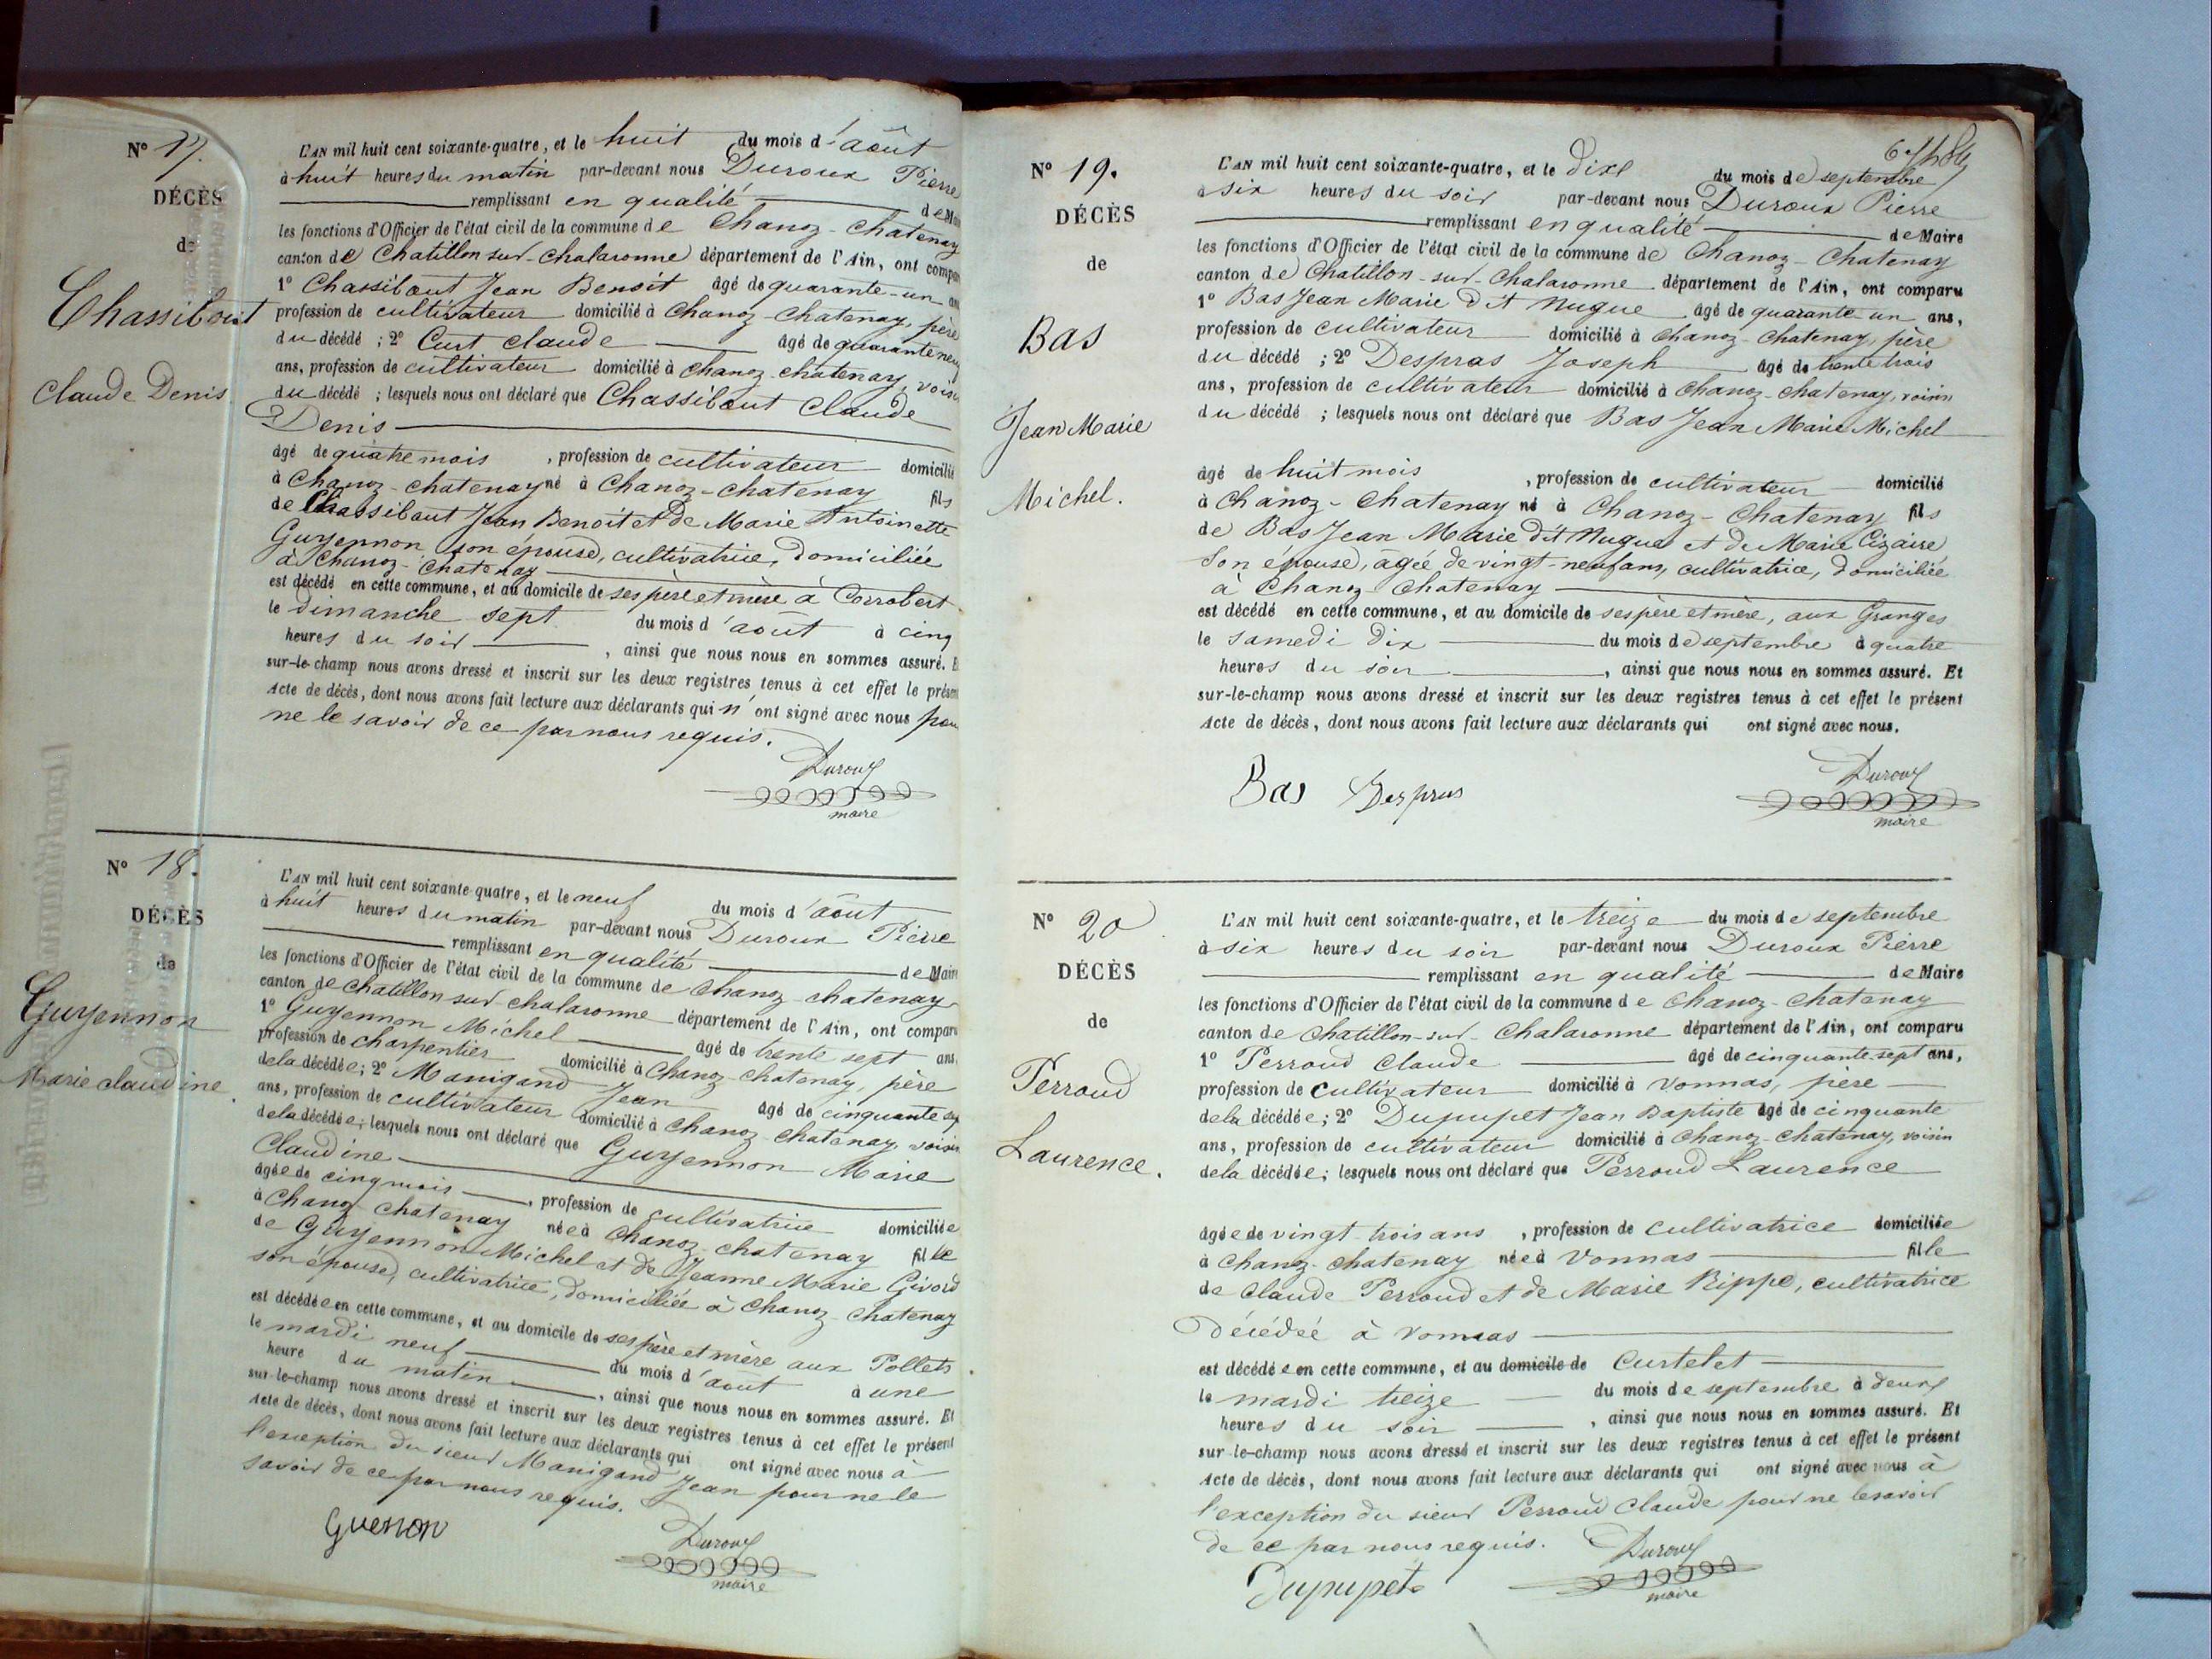 N° 17.
DÉCÈS
de
Chassibout
Claude Denis
L'AN mil huit cent soixante-quatre, et le huit du mois d'août
à huit heures du matin par-devant nous Duroux Pierre
remplissant en qualité de
les fonctions d'Officier de l'état civil de la commune de Chanoz-Chatenay
canton de Chatillon sur-Chalaronne département de l'Ain, ont
1° Chassibout Jean Benoit âgé de quarante-un
profession de cultivateur domicilié à Chanoz-Chatenay, père
du décédé ; 2° Curt Claude âgé de quarante
ans, profession de cultivateur domicilié à Chanoz-chatenay,
du décédé ; lesquels nous ont déclaré que Chassibout Claude
Denis
âgé de quatre mois , profession de cultivateur domicilié
à Chanoz-chatenay né à Chanoz-Chatenay fils
de Chassibout Jean Benoit et de Marie Antoinette
Guyennon son épouse, cultivatrice, domiciliée
à Chanoz-Chatenay
est décédé en cette commune, et au domicile de ses père et mère à Corrobert
le dimanche sept du mois d'août à cinq
heures du soir , ainsi que nous nous en sommes assuré.
sur-le-champ nous avons dressé et inscrit sur les deux registres tenus à cet effet le
Acte de décès, dont nous avons fait lecture aux déclarants qui n'ont signé avec nous
ne le savoir de ce par nous requis.
Duroux
maire
N° 18.
DÉCÈS
de
Guyennon
Marie claudine.
L'AN mil huit cent soixante-quatre, et le neuf du mois d'août
à huit heures du matin par-devant nous Duroux Pierre
remplissant en qualité de Maire
les fonctions d'Officier de l'état civil de la commune de Chanoz-chatenay
canton de Chatillon sur-chalaronne département de l'Ain, ont comparu
1° Guyennon Michel âgé de trente sept ans,
profession de charpentier domicilié à Chanoz-chatenay, père
de la décédée ; 2° Manigand Jean âgé de cinquante
ans, profession de cultivateur domicilié à Chanoz-Chatenay, voisin
de la décédée ; lesquels nous ont déclaré que Guyennon Marie
Claudine
âgée de cinq mois , profession de cultivatrice domiciliée
à Chanoz-chatenay née à Chanoz-chatenay fille
de Guyennon Michel et de Jeanne Marie Givord
son épouse, cultivatrice, domiciliée à Chanoz-Chatenay
est décédée en cette commune, et au domicile de ses père et mère aux Pollets
le mardi neuf du mois d'août à une
heure du matin , ainsi que nous nous en sommes assuré. Et
sur-le-champ nous avons dressé et inscrit sur les deux registres tenus à cet effet le présent
Acte de décès, dont nous avons fait lecture aux déclarants qui ont signé avec nous à
l'exception du sieur Manigand Jean pour ne le
savoir de ce par nous requis.
Guenon
Duroux
maire
N° 19.
DÉCÈS
de
Bas
Jean Marie
Michel.
L'AN mil huit cent soixante-quatre, et le dix du mois de septembre
à six heures du soir par-devant nous Duroux Pierre
remplissant en qualité de Maire
les fonctions d'Officier de l'état civil de la commune de Chanoz-Chatenay
canton de Chatillon-sur-Chalaronne département de l'Ain, ont comparu
1° Bas Jean Marie dit Nugue âgé de quarante un ans,
profession de cultivateur domicilié à Chanoz-Chatenay, père
du décédé ; 2° Despras Joseph âgé de trente trois
ans, profession de cultivateur domicilié à Chanoz-Chatenay, voisin
du décédé ; lesquels nous ont déclaré que Bas Jean Marie Michel
âgé de huit mois , profession de cultivateur domicilié
à Chanoz-Chatenay né à Chanoz-Chatenay fils
de Bas Jean Marie dit Nugue et de Marie Cizaire
son épouse, âgée de vingt-neuf ans, cultivatrice, domiciliée
à Chanoz-Chatenay
est décédé en cette commune, et au domicile de ses père et mère, aux Granges
le samedi dix du mois de septembre à quatre
heures du soir , ainsi que nous nous en sommes assuré. Et
sur-le-champ nous avons dressé et inscrit sur les deux registres tenus à cet effet le présent
Acte de décès, dont nous avons fait lecture aux déclarants qui ont signé avec nous.
Bas Despras
Duroux
maire
N° 20
DÉCÈS
de
Perroud
Laurence.
L'AN mil huit cent soixante-quatre, et le treize du mois de septembre
à six heures du soir par-devant nous Duroux Pierre
remplissant en qualité de Maire
les fonctions d'Officier de l'état civil de la commune de Chanoz-Chatenay
canton de Chatillon-sur-Chalaronne département de l'Ain, ont comparu
1° Perroud Claude âgé de cinquante-sept ans,
profession de cultivateur domicilié à Vonnas, père
de la décédée ; 2° Dupupet Jean Baptiste âgé de cinquante
ans, profession de cultivateur domicilié à Chanoz-Chatenay, voisin
de la décédée ; lesquels nous ont déclaré que Perroud Laurence
âgée de vingt-trois ans , profession de cultivatrice domiciliée
à Chanoz-chatenay née à Vonnas fille
de Claude Perroud et de Marie Rippe, cultivatrice
décédée à Vonnas
est décédée en cette commune, et au domicile de Curtelet
le mardi treize du mois de septembre à deux
heures du soir , ainsi que nous nous en sommes assuré. Et
sur-le-champ nous avons dressé et inscrit sur les deux registres tenus à cet effet le présent
Acte de décès, dont nous avons fait lecture aux déclarants qui ont signé avec nous à
l'exception du sieur Perroud Claude pour ne le savoir
de ce par nous requis.
Dupupet
Duroux
maire